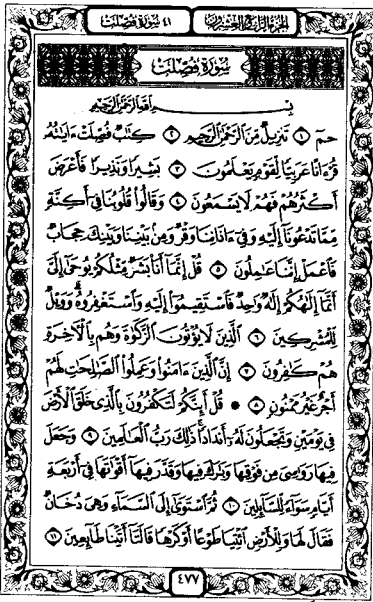 الجزء الرابع والعشرون
٤١ سورة فصلت
سورة فصلت
بسم الله الرحمن الرحيم
حمٓ ١ تَنزِيلٌ مِّنَ ٱلرَّحْمَٰنِ ٱلرَّحِيمِ ٢ كِتَٰبٌ فُصِّلَتْ ءَايَٰتُهُۥ
قُرْءَانًا عَرَبِيًّا لِّقَوْمٍ يَعْلَمُونَ ٣ بَشِيرًا وَنَذِيرًا فَأَعْرَضَ
أَكْثَرُهُمْ فَهُمْ لَا يَسْمَعُونَ ٤ وَقَالُوا۟ قُلُوبُنَا فِىٓ أَكِنَّةٍ
مِّمَّا تَدْعُونَآ إِلَيْهِ وَفِىٓ ءَاذَانِنَا وَقْرٌ وَمِنۢ بَيْنِنَا وَبَيْنِكَ حِجَابٌ
فَٱعْمَلْ إِنَّنَا عَٰمِلُونَ ٥ قُلْ إِنَّمَآ أَنَا۠ بَشَرٌ مِّثْلُكُمْ يُوحَىٰٓ إِلَىَّ
أَنَّمَآ إِلَٰهُكُمْ إِلَٰهٌ وَٰحِدٌ فَٱسْتَقِيمُوٓا۟ إِلَيْهِ وَٱسْتَغْفِرُوهُ وَوَيْلٌ
لِّلْمُشْرِكِينَ ٦ ٱلَّذِينَ لَا يُؤْتُونَ ٱلزَّكَوٰةَ وَهُم بِٱلْءَاخِرَةِ
هُمْ كَٰفِرُونَ ٧ إِنَّ ٱلَّذِينَ ءَامَنُوا۟ وَعَمِلُوا۟ ٱلصَّٰلِحَٰتِ لَهُمْ
أَجْرٌ غَيْرُ مَمْنُونٍ ٨ ۞ قُلْ أَئِنَّكُمْ لَتَكْفُرُونَ بِٱلَّذِى خَلَقَ ٱلْأَرْضَ
فِى يَوْمَيْنِ وَتَجْعَلُونَ لَهُۥٓ أَندَادًا ۚ ذَٰلِكَ رَبُّ ٱلْعَٰلَمِينَ ٩ وَجَعَلَ
فِيهَا رَوَٰسِىَ مِن فَوْقِهَا وَبَٰرَكَ فِيهَا وَقَدَّرَ فِيهَآ أَقْوَٰتَهَا فِىٓ أَرْبَعَةِ
أَيَّامٍ سَوَآءً لِّلسَّآئِلِينَ ١٠ ثُمَّ ٱسْتَوَىٰٓ إِلَى ٱلسَّمَآءِ وَهِىَ دُخَانٌ
فَقَالَ لَهَا وَلِلْأَرْضِ ٱئْتِيَا طَوْعًا أَوْ كَرْهًا قَالَتَآ أَتَيْنَا طَآئِعِينَ ١١
٤٧٧